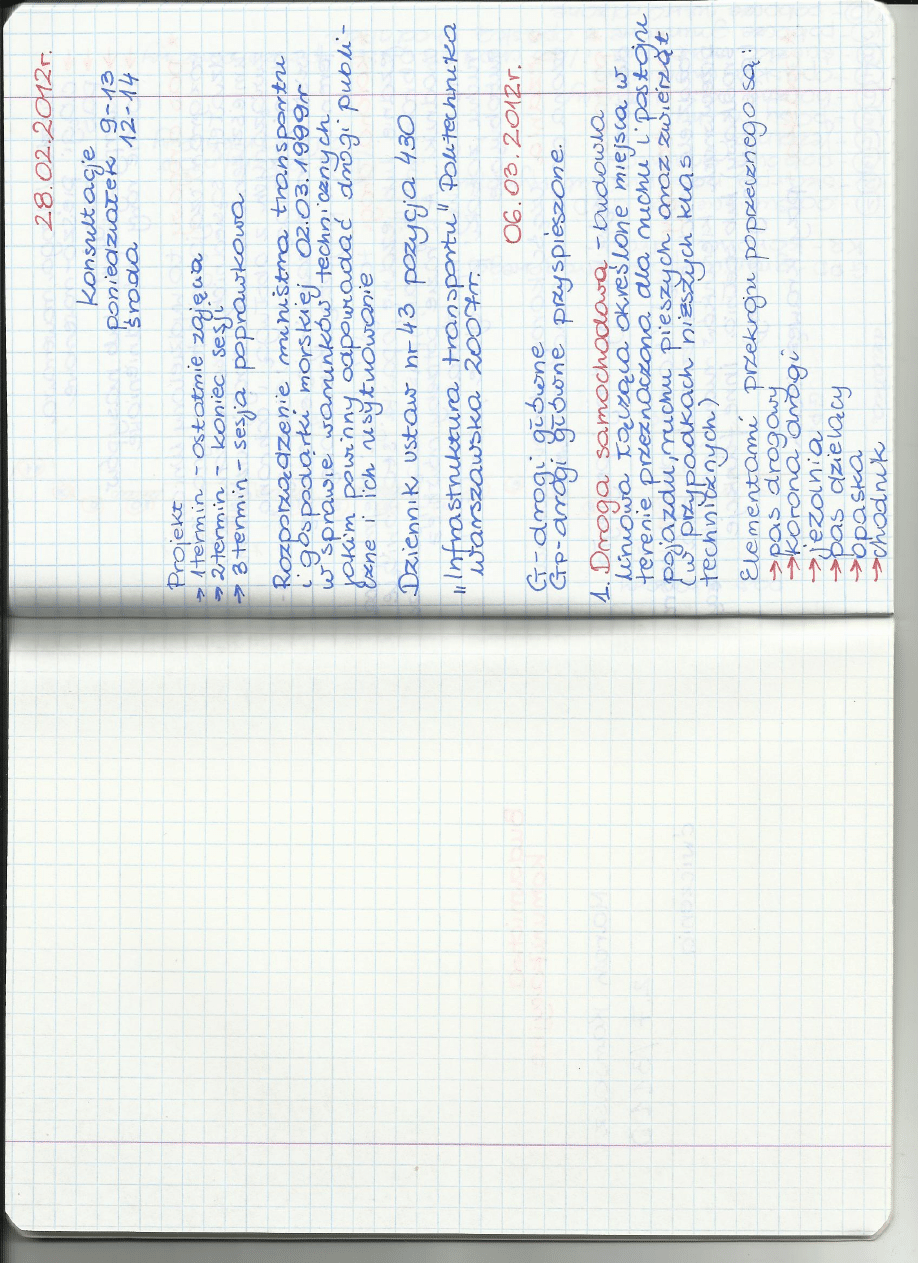 28.02.2012r.
Konsultacje
poniedziałek 9-13
środa 12-14
Projekt
→ 1 termin - ostatnie zajęcia
→ 2 termin - koniec sesji
→ 3 termin - sesja poprawkowa
Rozporządzenie ministra transportu
i gospodarki morskiej 02.03.1999r
w sprawie warunków technicznych
jakim powinny odpowiadać drogi publi-
czne i ich usytuowanie
Dziennik ustaw nr 43 pozycja 430
"Infrastruktura transportu" Politechnika
Warszawska 2007r.
06.03.2012r.
G-drogi główne
GP-drogi główne przyspieszone.
1. Droga samochodowa - budowla
liniowa łącząca określone miejsca w
terenie przeznaczona dla ruchu i postoju
pojazdu, ruchu pieszych oraz zwierząt
(w przypadkach niższych klas
technicznych)
Elementami przekroju poprzecznego są:
→ pas drogowy
→ korona drogi
→ jezdnia
→ pas dzielący
→ opaska
→ chodnik